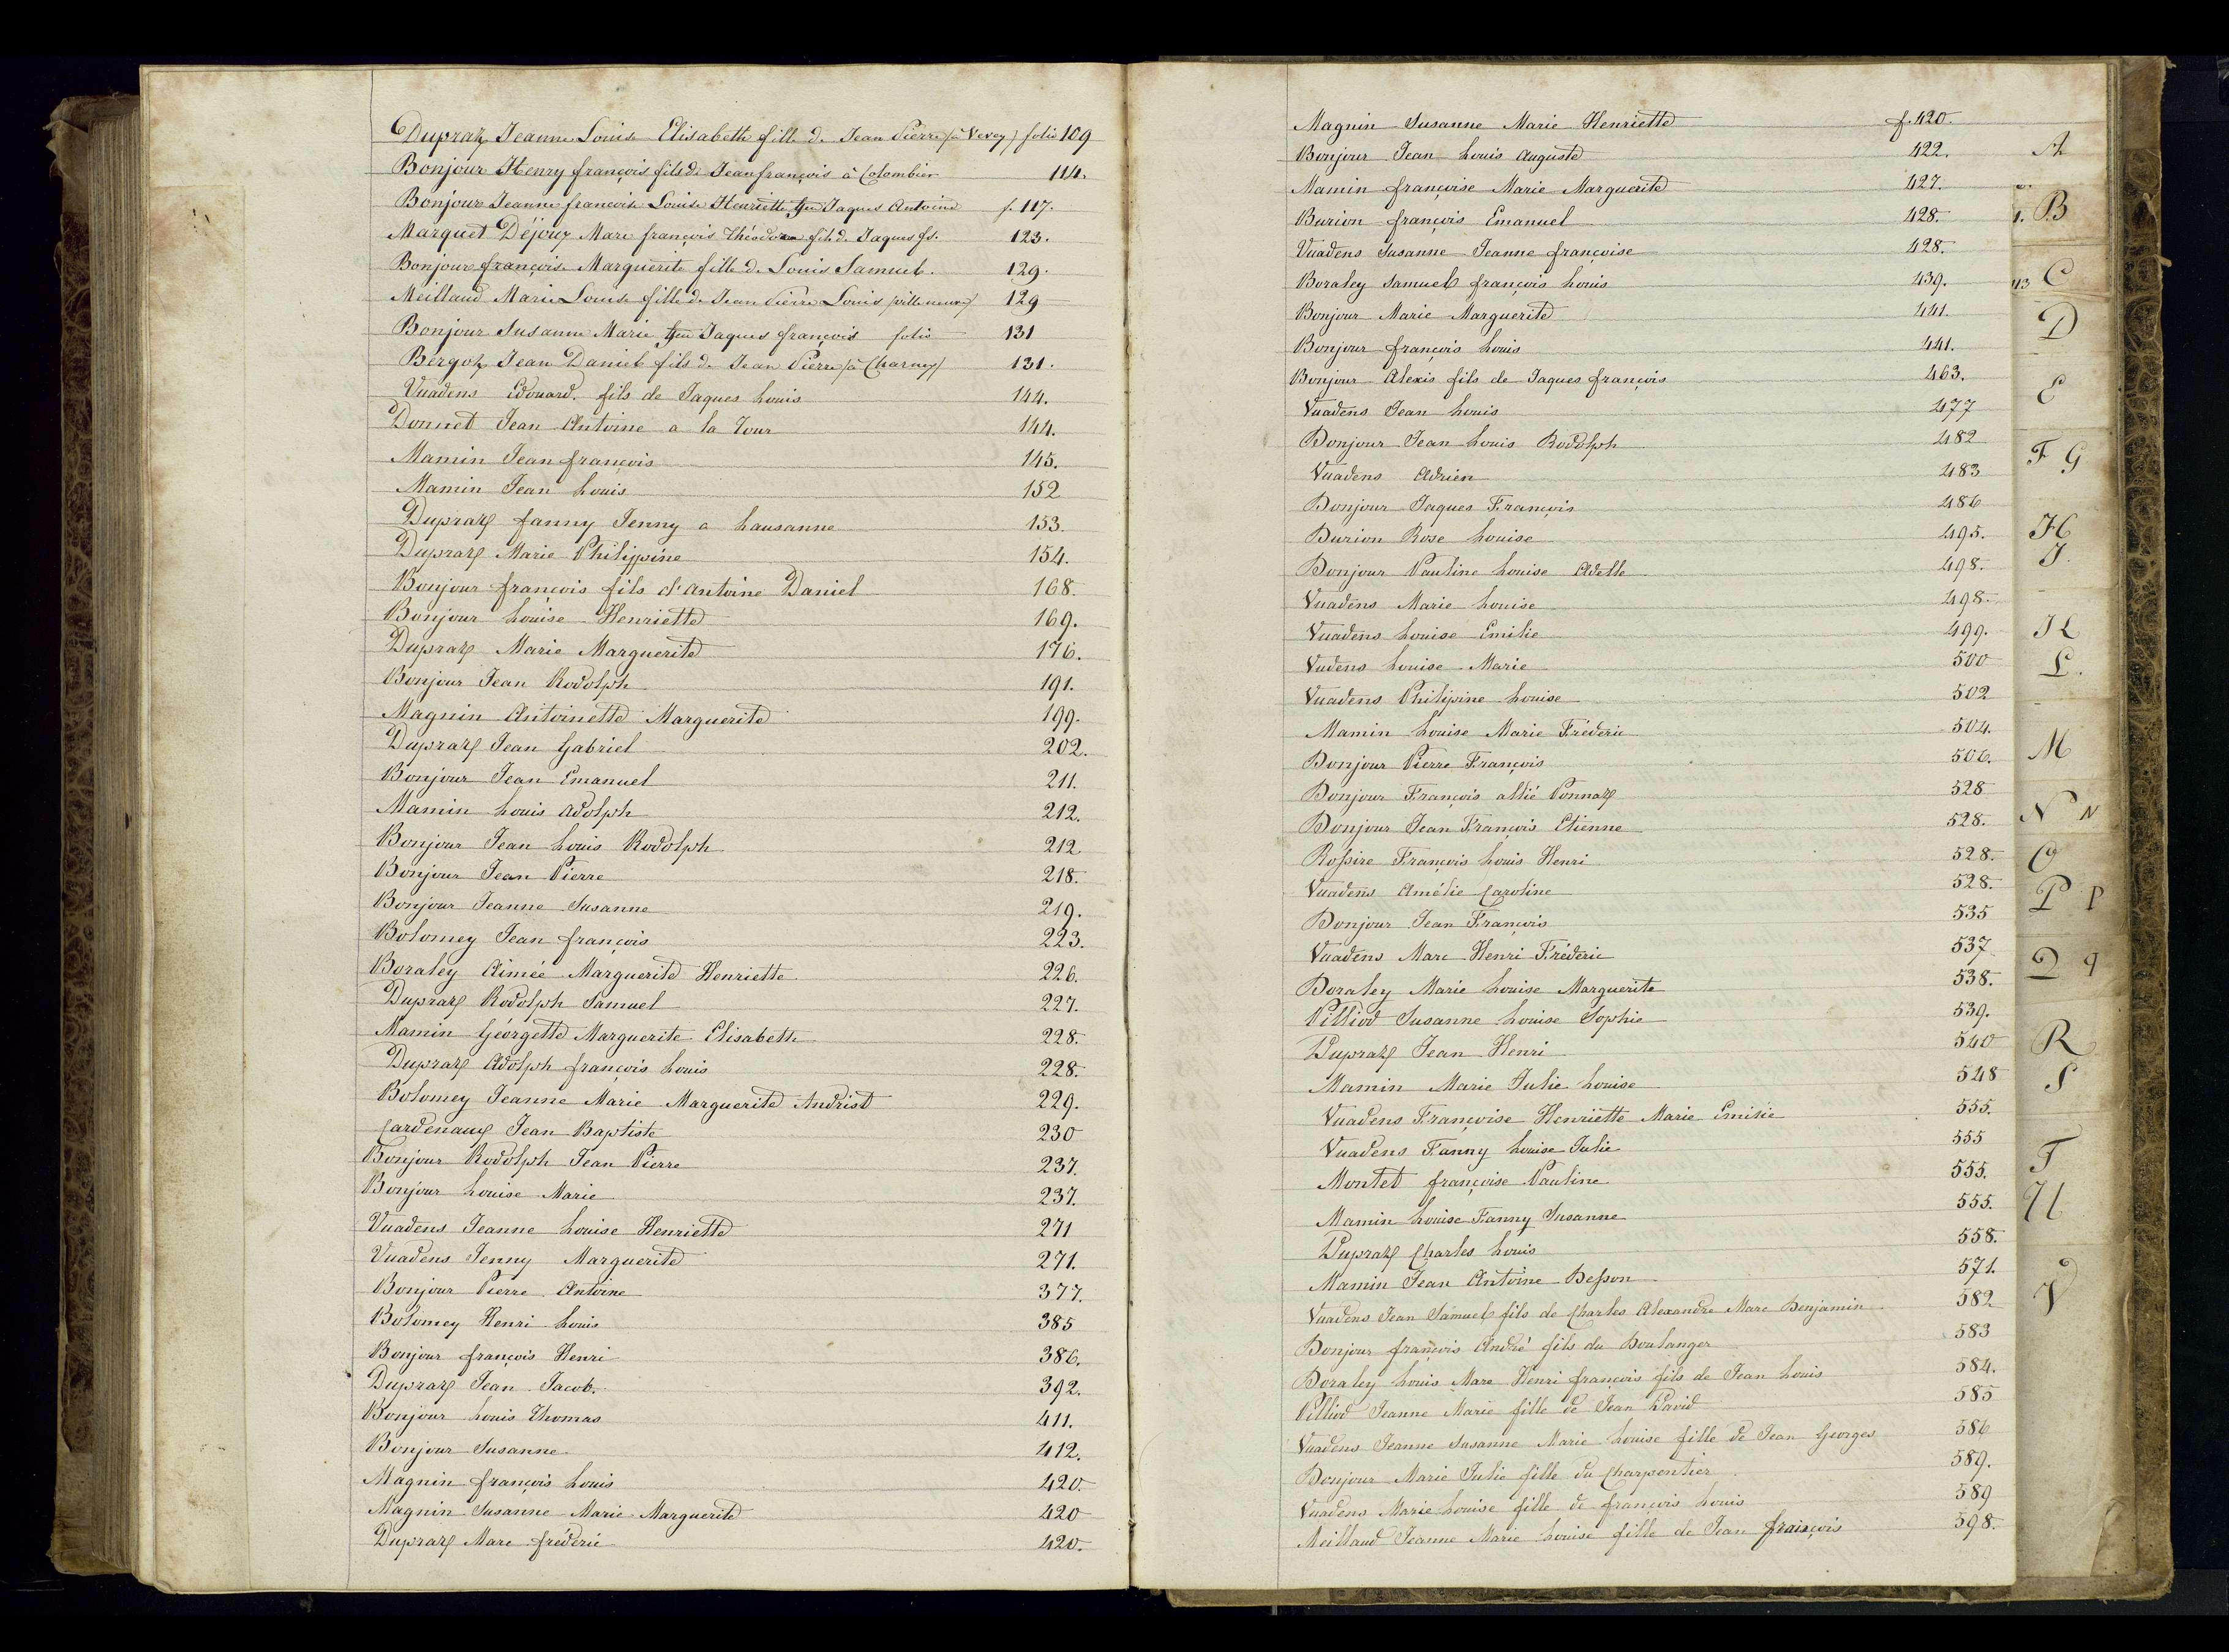 Dupraz Jeanne Louise Elisabeth fille de Jean Pierre (à Vevey) folio 109
Bonjour Henry françois fils de Jean françois à Colombier 114.
Bonjour Jeanne françoise Louise Henriette, feu Jaques Antoine f. 117.
Marguet Déjoux Marc françois Théodore fils de Jaques fs. 123.
Bonjour françoise Marguerite fille de Louis Samuel. 129.
Meillaud Marie Louise fille de Jean Pierre Louis (villeneuve) 129
Bonjour Susanne Marie, feu Jaques françois folio 131
Bergoz Jean Daniel fils de Jean Pierre (à Charney) 131.
Vuadens Edouard. fils de Jaques Louis 144.
Donnet Jean Antoine a la Tour 144.
Mamin Jean françois 145.
Mamin Jean Louis 152
Dupraz fanny Jenny a Lausanne 153.
Dupraz Marie Philippine 154.
Bonjour françois fils d'Antoine Daniel 168.
Bonjour Louise Henriette 169.
Dupraz Marie Marguerite 176.
Bonjour Jean Rodolph 191.
Magnin Antoinette Marguerite 199.
Dupraz Jean Gabriel 202.
Bonjour Jean Emanuel 211.
Mamin Louis Adolph 212.
Bonjour Jean Louis Rodolph 212
Bonjour Jean Pierre 218.
Bonjour Jeanne Susanne 219.
Bolomey Jean françois 223.
Boraley Aimée Marguerite Henriette 226.
Dupraz Rodolph Samuel 227.
Mamin Géorgette Marguerite Elisabeth 228.
Dupraz Adolph françois Louis 228.
Bolomey Jeanne Marie Marguerite Andrist 229.
Cardenaux Jean Baptiste 230
Bonjour Rodolph Jean Pierre 237.
Bonjour Louise Marie 237.
Vuadens Jeanne Louise Henriette 271
Vuadens Jenny Marguerite 271.
Bonjour Pierre Antoine 377.
Bolomey Henri Louis 385
Bonjour françois Henri 386.
Dupraz Jean Jacob. 392.
Bonjour Louis Thomas 411.
Bonjour Susanne 412.
Magnin françois Louis 420.
Magnin Susanne Marie Marguerite 420
Dupraz Marc fréderic 420.
Magnin Susanne Marie Henriette f. 420.
Bonjour Jean Louis Auguste 422.
Mamin françoise Marie Marguerite 427.
Burion françois Emanuel 428.
Vuadens Susanne Jeanne françoise 428.
Boraley Samuel françois Louis 439.
Bonjour Marie Marguerite 441.
Bonjour françois Louis 441.
Bonjour Alexis fils de Jaques françois 463.
Vuadens Jean Louis 477
Bonjour Jean Louis Rodolph 482
Vuadens Adrien 483
Bonjour Jaques François 486
Burion Rose Louise 495.
Bonjour Pauline Louise Adelle 498.
Vuadens Marie Louise 498.
Vuadens Louise Emilie 499.
Vudens Louise Marie 500
Vuadens Philipine Louise 502
Mamin Louise Marie Fréderic 504.
Bonjour Pierre François 506.
Bonjour François allié Ponnaz 528
Bonjour Jean François Etienne 528.
Rossire François Louis Henri 528.
Vuadens Amélie Caroline 528.
Bonjour Jean François 535
Vuadens Marc Henri Fréderic 537
Boraley Marie Louise Marguerite 538.
Pilliod Susanne Louise Sophie 539.
Dupraz Jean Henri 540
Mamin Marie Julie Louise 548
Vuadens Françoise Henriette Marie Emilie 555.
Vuadens Fanny Louise Julie 555
Montet françoise Pauline 555.
Mamin Louise Fanny Susanne 555.
Dupraz Charles Louis 558.
Mamin Jean Antoine Besson 571.
Vuadens Jean Samuel fils de Charles Alexandre Marc Benjamin 582.
Bonjour françois André fils du Boulanger 583
Boraley Louis Marc Henri françois fils de Jean Louis 584.
Pilliod Jeanne Marie fille de Jean David 585
Vuadens Jeanne Susanne Marie Louise fille de Jean Georges 586
Bonjour Marie Julie fille du Charpentier 589.
Vuadens Marie Louise fille de françois Louis 589
Meillaud Jeanne Marie Louise fille de Jean françois 598.
A
B
C
D
E
F G
H
I
K
L.
M
N N
O
P P
Q q
R
S
T
U
V